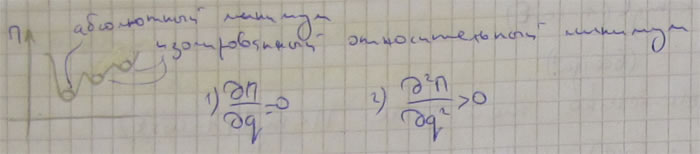 П абсолютный минимум
изолированный относительный минимум
1) ∂П/∂q = 0 2) ∂²П/∂q² > 0